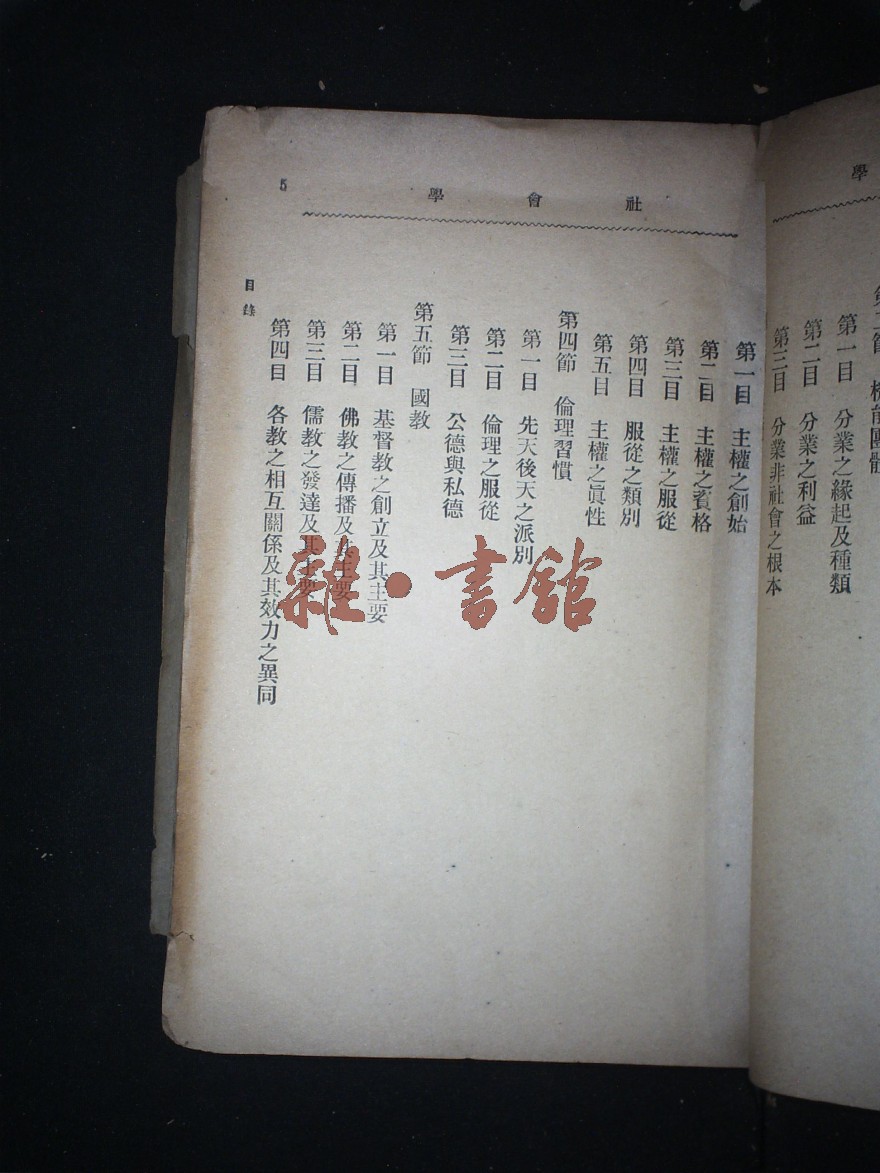 學
第一目　分業之緣起及種類
第二目　分業之利益
第三目　分業非社會之根本
社會學
5
第一目　主權之創始
第二目　主權之資格
第三目　主權之服從
第四目　服從之類別
第五目　主權之眞性
第四節　倫理習慣
第一目　先天後天之派別
第二目　倫理之服從
第三目　公德與私德
第五節　國教
第一目　基督教之創立及其主要
第二目　佛教之傳播及其主要
第三目　儒教之發達及其主要
第四目　各教之相互關係及其效力之異同
目錄
雜·書館